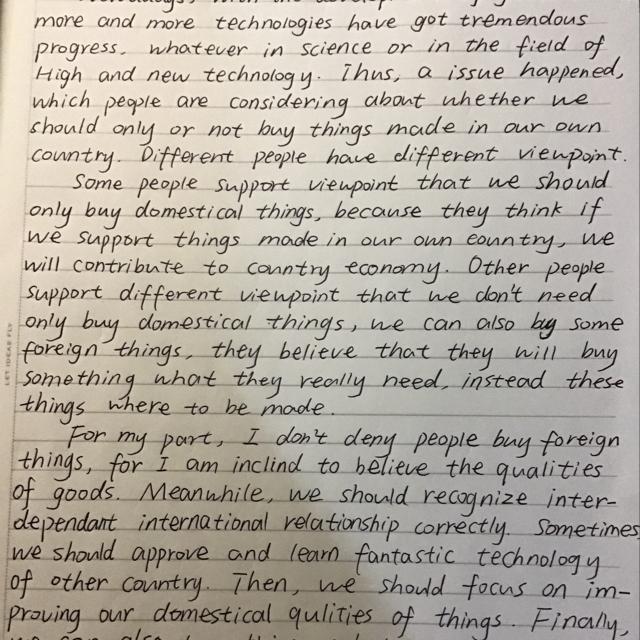 more and more technologies have got tremendous
progress, whatever in science or in the field of
High and new technology. Thus, a issue happened,
which people are considering about whether we
should only or not buy things made in our own
country. Different people have different viewpoint.
Some people support viewpoint that we should
only buy domestical things, because they think if
we support things made in our own country, we
will contribute to country economy. Other people
support different viewpoint that we don't need
only buy domestical things, we can also buy some
foreign things, they believe that they will buy
something what they really need, instead these
things where to be made.
For my part, I don't deny people buy foreign
things, for I am inclind to believe the qualities
of goods. Meanwhile, we should recognize inter-
dependant international relationship correctly. Sometimes
we should approve and learn fantastic technology
of other country. Then, we should focus on im-
proving our domestical qulities of things. Finally,
LET IDEAS FLY